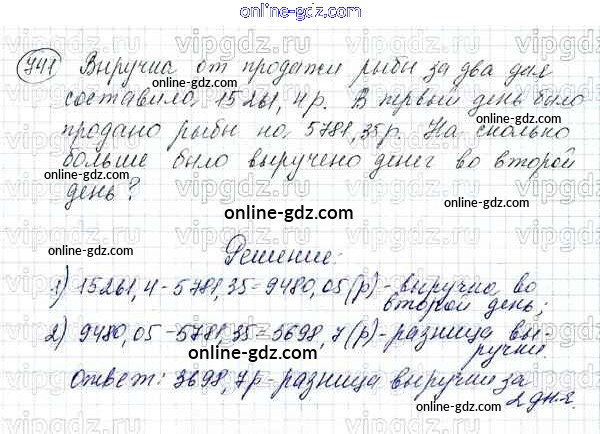 online-gdz.com
741 Выручка от продажи рыбы за два дня
составила 15261,4 р. В первый день было
продано рыбы на 5781,35 р. На сколько
больше было выручено денег во второй
день?
online-gdz.com
Решение:
1) 15261,4 - 5781,35 = 9480,05 (р) - выручка во
второй день;
2) 9480,05 - 5781,35 = 3698,7 (р) - разница вы-
ручки.
Ответ: 3698,7 р - разница выручки за
2 дня.
online-gdz.com